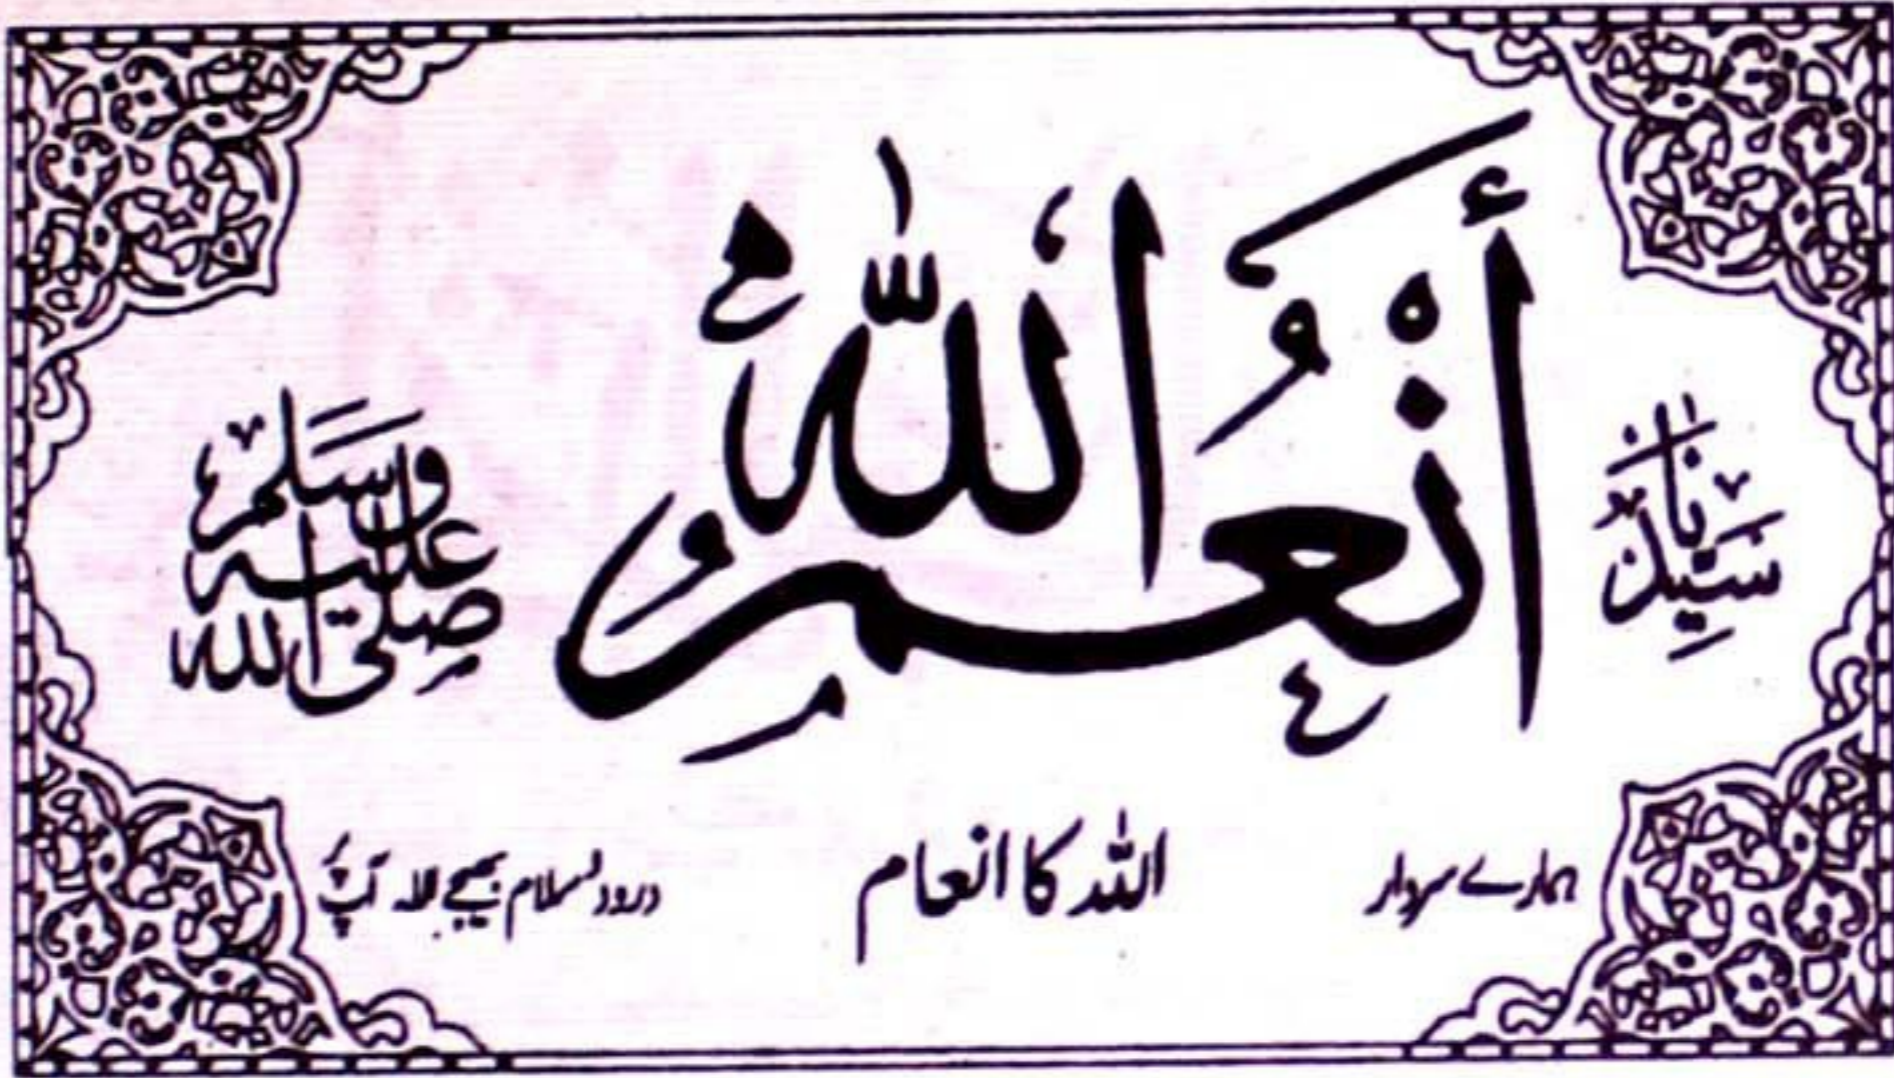 سَيِّدُنَا أَنْعَمُ اللّٰهِ صلى الله عليه وسلم
ہمارے سردار اللہ کا انعام درود و سلام بھیجے اللہ آپؐ پر